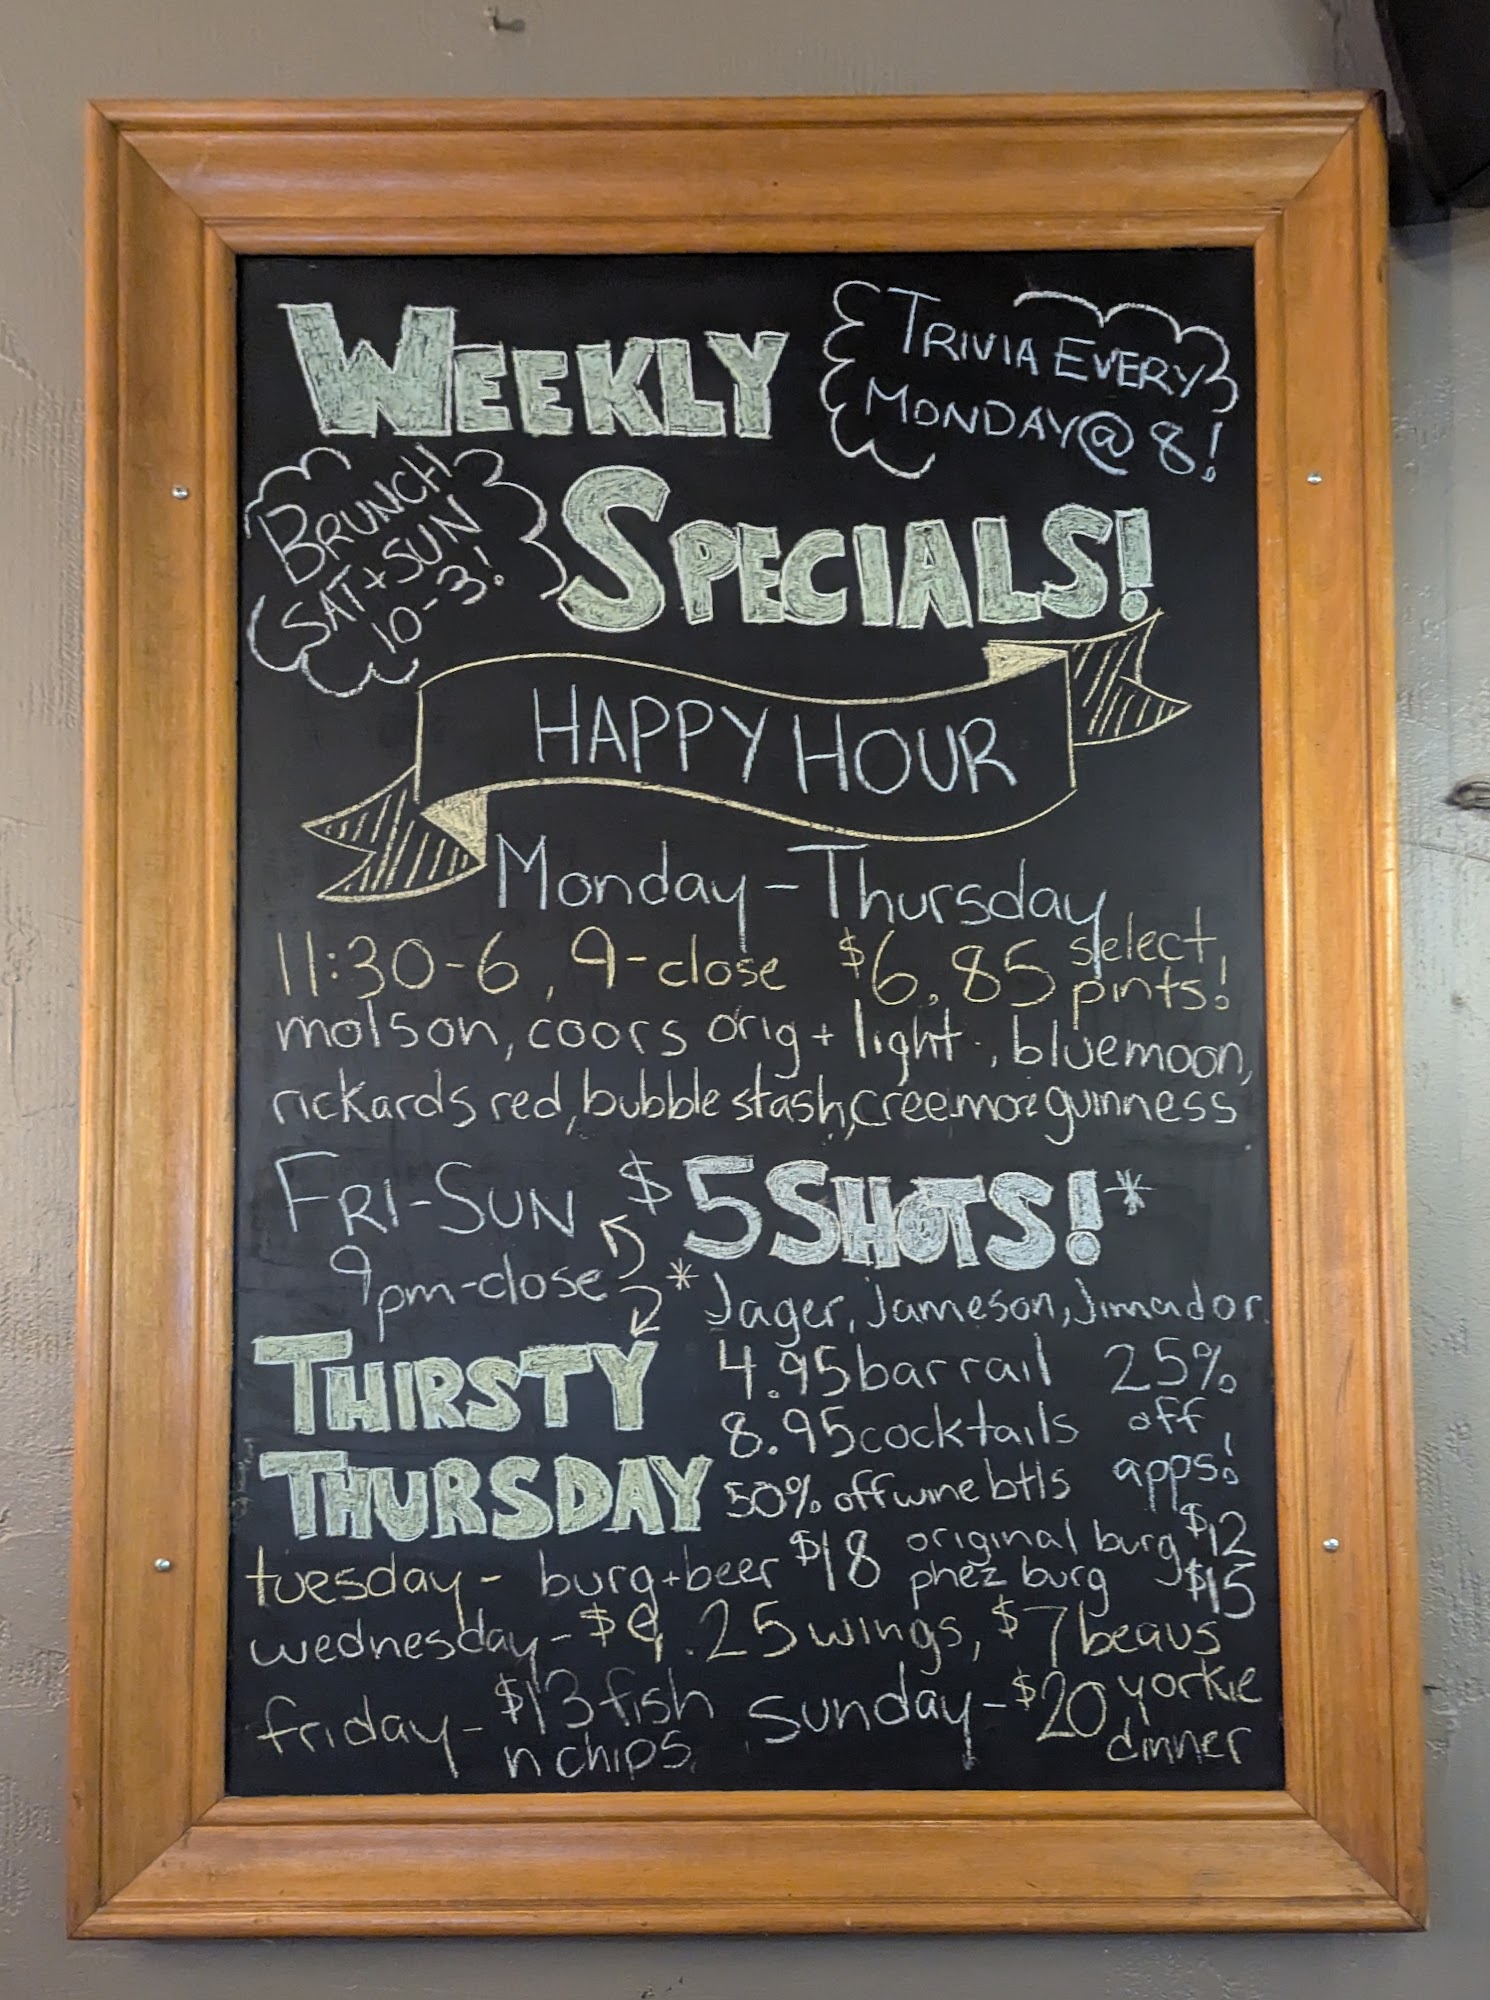 WEEKLY
SPECIALS!
TRIVIA EVERY
MONDAY @ 8!
BRUNCH
SAT + SUN
10-3!
HAPPY HOUR
Monday - Thursday
11:30-6, 9-close $6.85 select pints!
molson, coors orig + light, bluemoon,
rickards red, bubble stash, creemore guinness
FRI-SUN $5 SHOTS!*
9pm-close *Jager, jameson, jimador.
THIRSTY
THURSDAY
4.95 bar rail
8.95 cocktails
50% off wine btls
25%
off
apps!
tuesday - burg + beer $18 original burg $12
phez burg $15
wednesday - $9.25 wings, $7 beaus
friday - $13 fish
n chips
sunday - $20 yorkie
dinner